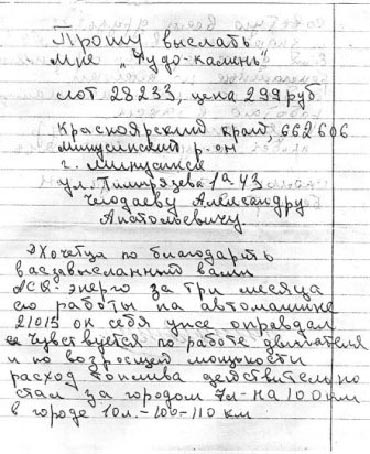 Прошу выслать
мне „Чудо-камень"
лот 28233, цена 299 руб
Красноярский край, 662606
Минусинский р-он
г. Минусинск
ул. Тимирязева 1а-43
Чегодаеву Александру
Анатольевичу
Хочетца по благодарить
вас за высланный вами
энерго за три месяца
его работы на автомашине
21015 он себя уже оправдал
чувствуется по работе двигателя
и по возросшей мощности
расход топлива действительно
стал за городом 7л-на 100км
в городе 10л.-100-110 км